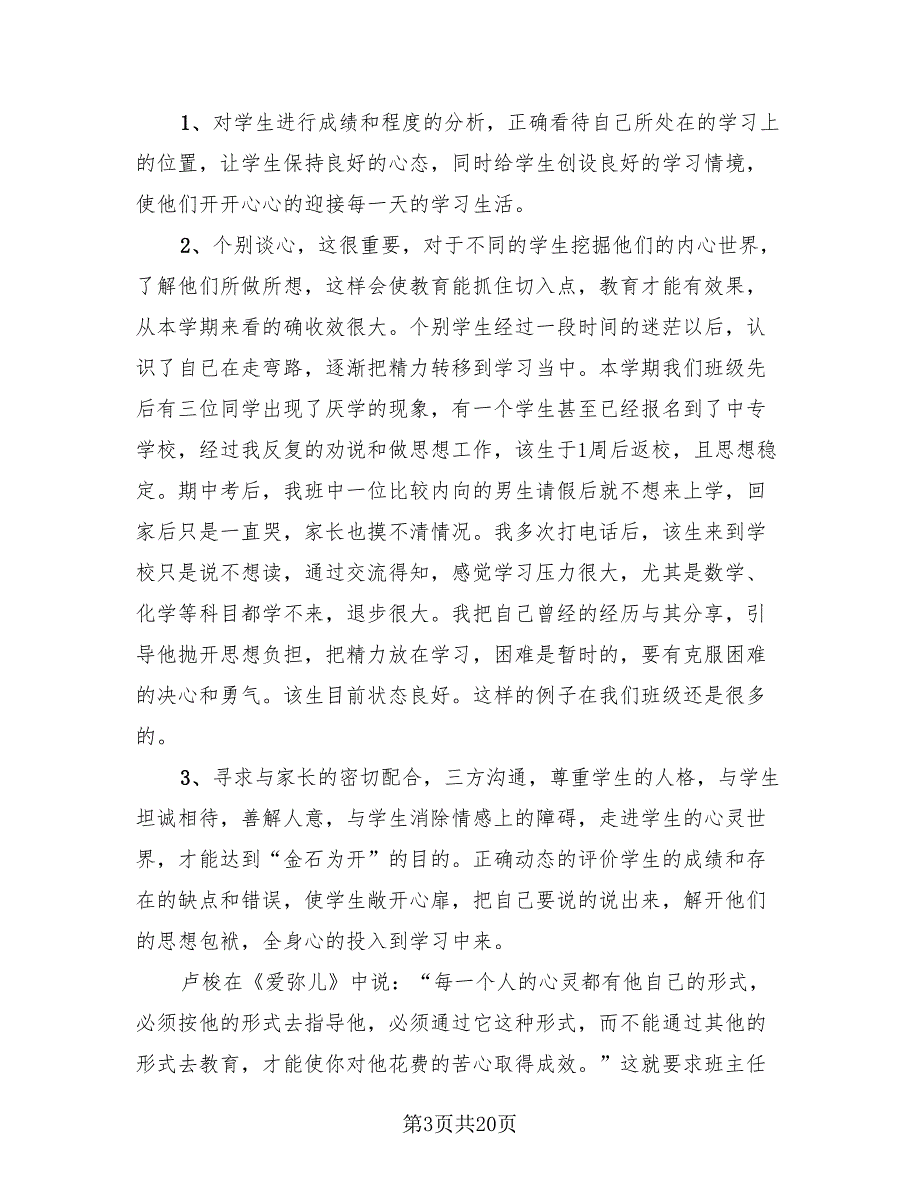 1、对学生进行成绩和程度的分析，正确看待自己所处在的学习上
的位置，让学生保持良好的心态，同时给学生创设良好的学习情境，
使他们开开心心的迎接每一天的学习生活。
2、个别谈心，这很重要，对于不同的学生挖掘他们的内心世界，
了解他们所做所想，这样会使教育能抓住切入点，教育才能有效果，
从本学期来看的确收效很大。个别学生经过一段时间的迷茫以后，认
识了自己在走弯路，逐渐把精力转移到学习当中。本学期我们班级先
后有三位同学出现了厌学的现象，有一个学生甚至已经报名到了中专
学校，经过我反复的劝说和做思想工作，该生于1周后返校，且思想稳
定。期中考后，我班中一位比较内向的男生请假后就不想来上学，回
家后只是一直哭，家长也摸不清情况。我多次打电话后，该生来到学
校只是说不想读，通过交流得知，感觉学习压力很大，尤其是数学、
化学等科目都学不来，退步很大。我把自己曾经的经历与其分享，引
导他抛开思想负担，把精力放在学习，困难是暂时的，要有克服困难
的决心和勇气。该生目前状态良好。这样的例子在我们班级还是很多
的。
3、寻求与家长的密切配合，三方沟通，尊重学生的人格，与学生
坦诚相待，善解人意，与学生消除情感上的障碍，走进学生的心灵世
界，才能达到“金石为开”的目的。正确动态的评价学生的成绩和存
在的缺点和错误，使学生敞开心扉，把自己要说的说出来，解开他们
的思想包袱，全身心的投入到学习中来。
卢梭在《爱弥儿》中说：“每一个人的心灵都有他自己的形式，
必须按他的形式去指导他，必须通过它这种形式，而不能通过其他的
形式去教育，才能使你对他花费的苦心取得成效。”这就要求班主任
第3页共20页